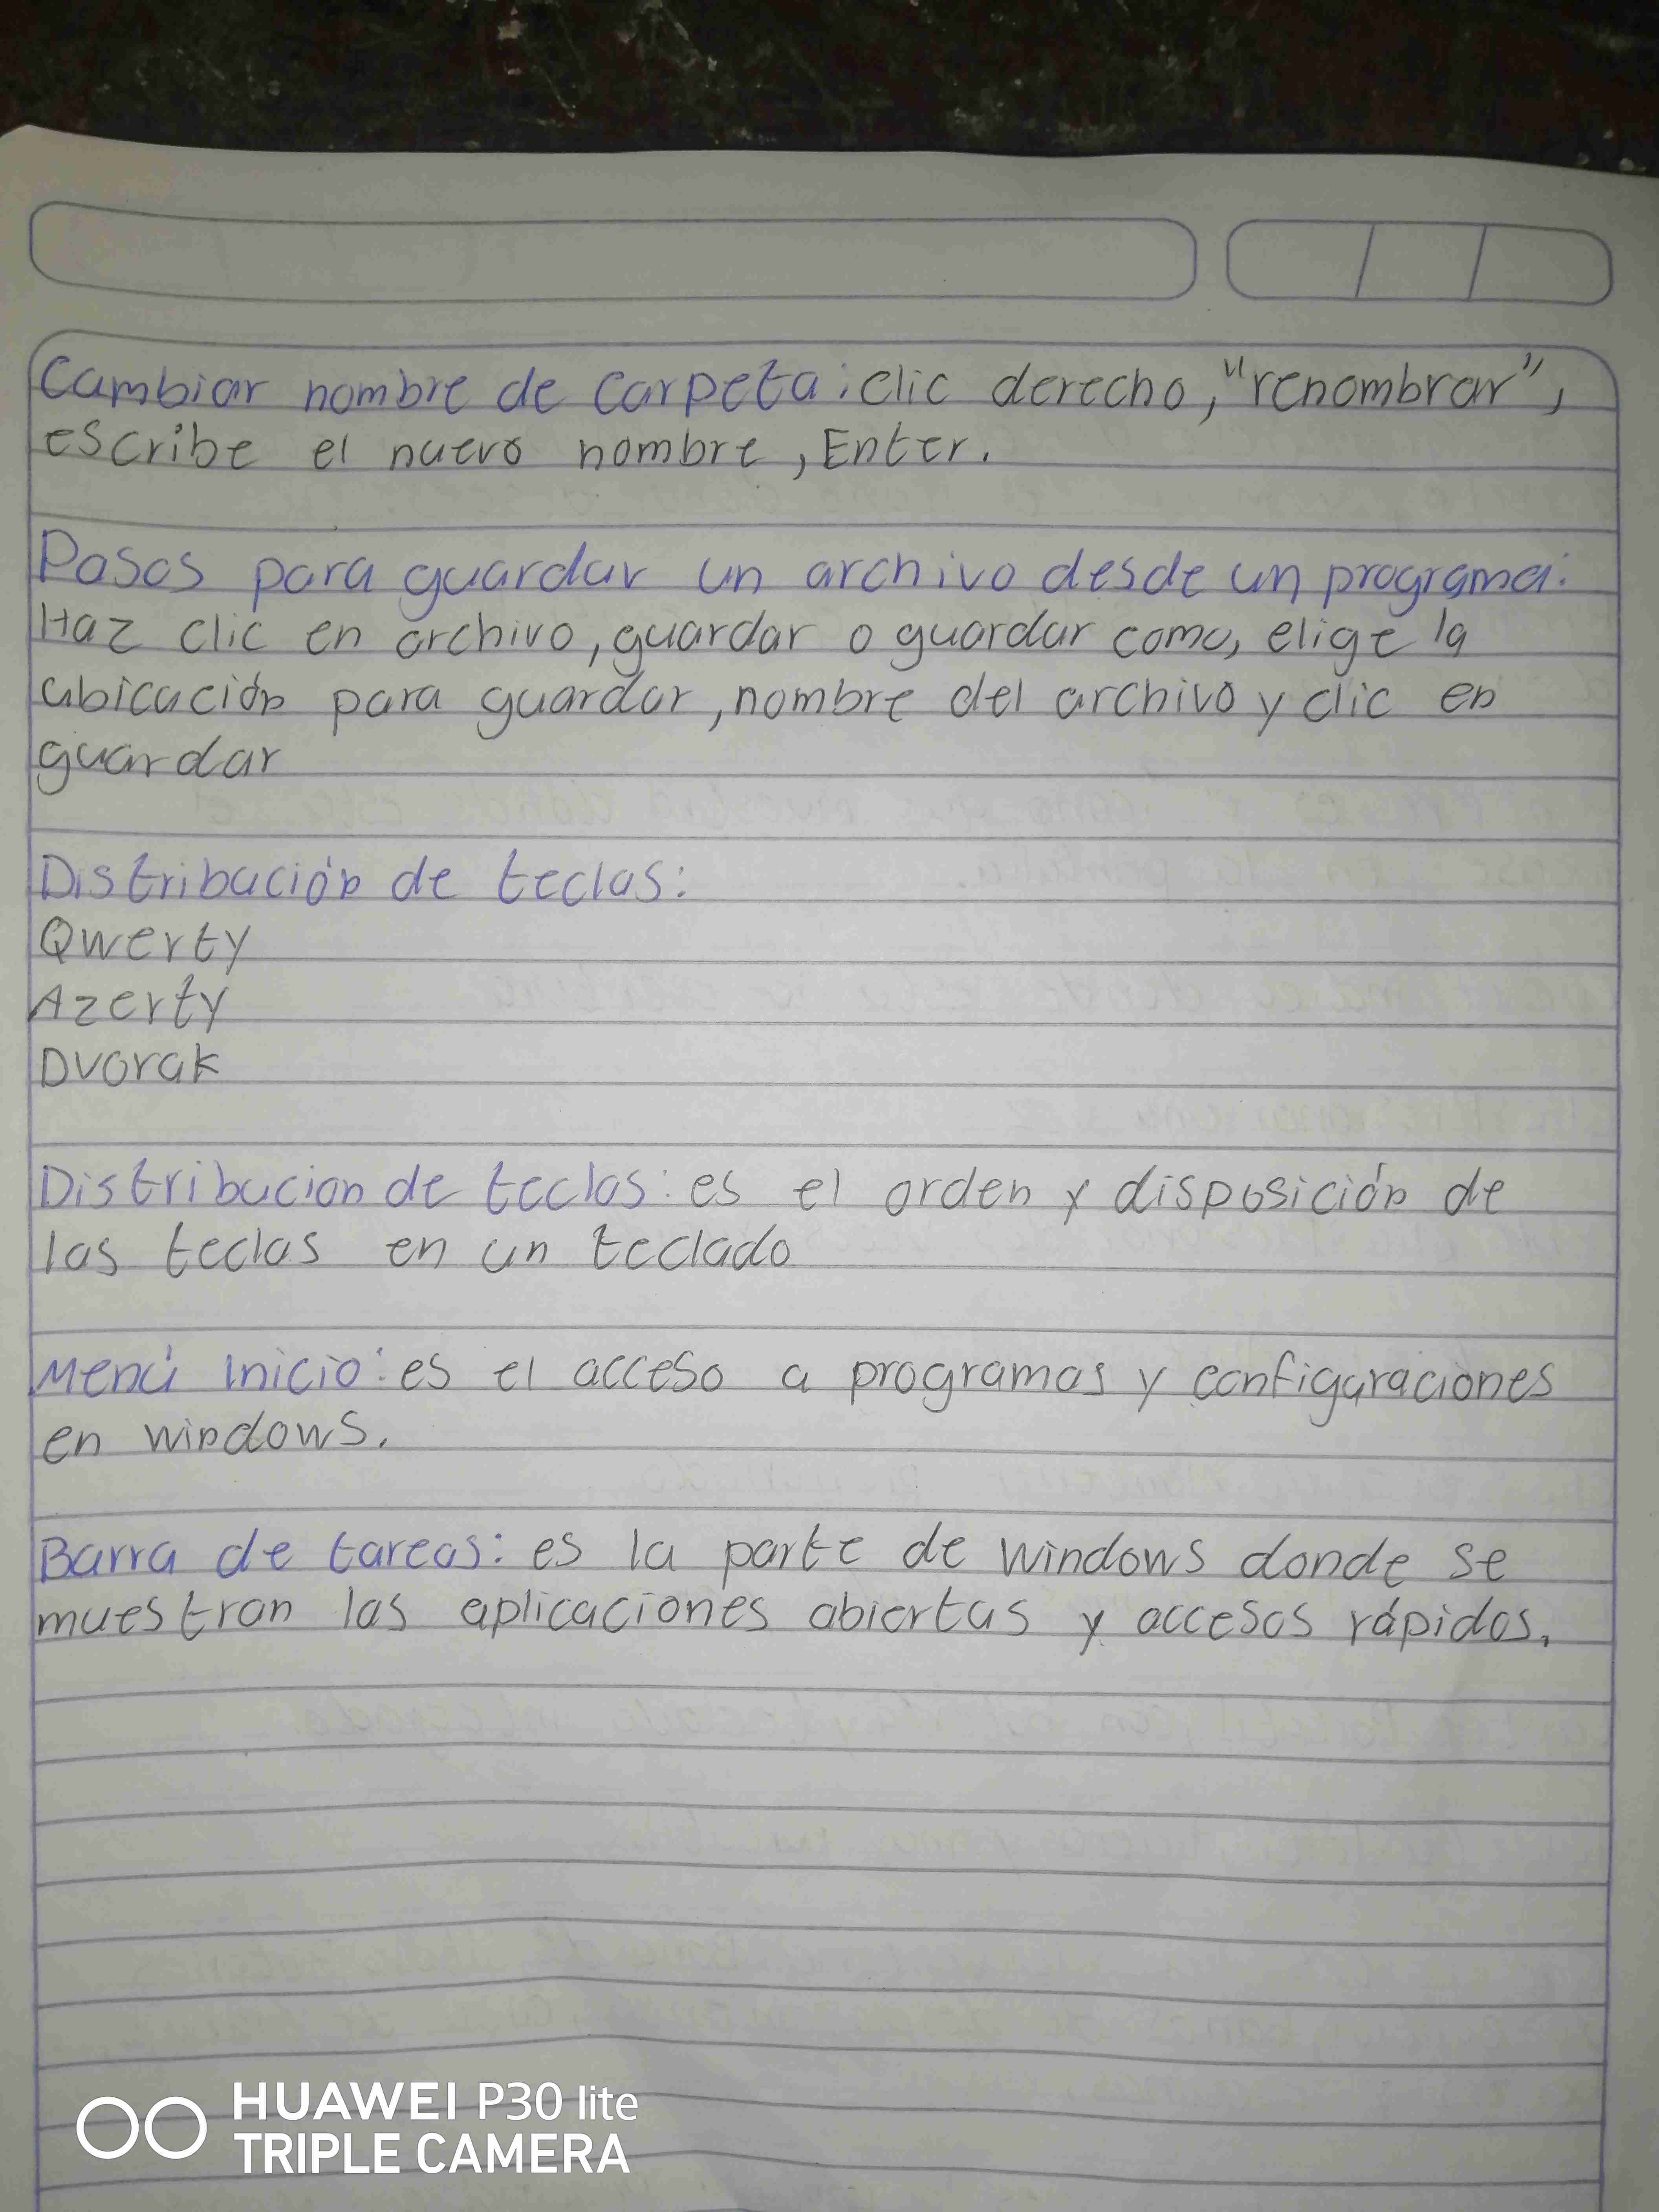 Cambiar nombre de carpeta: clic derecho, "renombrar",
escribe el nuevo nombre, Enter.
Pasos para guardar un archivo desde un programa:
Haz clic en archivo, guardar o guardar como, elige la
ubicación para guardar, nombre del archivo y clic en
guardar
Distribución de teclas:
Qwerty
Azerty
Dvorak
Distribucion de teclas: es el orden y disposición de
las teclas en un teclado
Menú Inicio: es el acceso a programas y configuraciones
en windows.
Barra de tareas: es la parte de Windows donde se
muestran las aplicaciones abiertas y accesos rápidos.
HUAWEI P30 lite
TRIPLE CAMERA